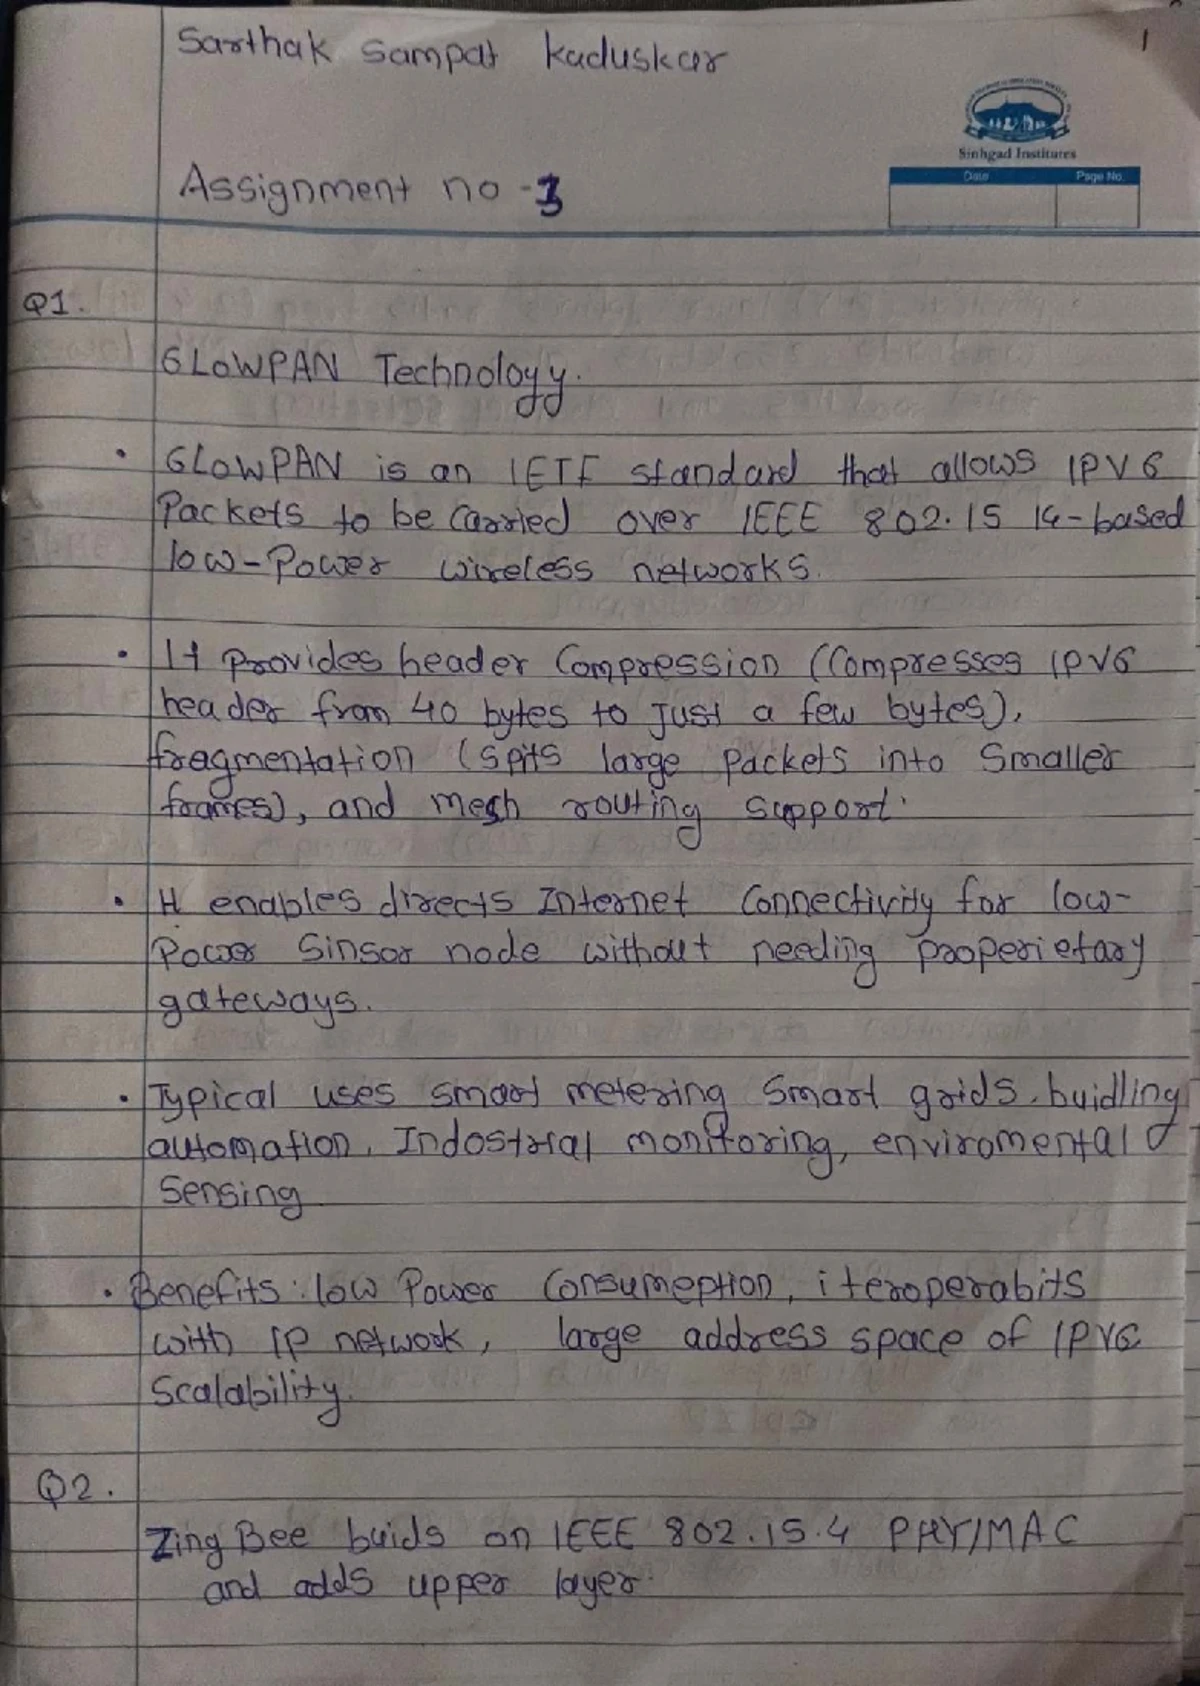 Sarthak Sampat Kaduskar
1
Sinhgad Institutes
Date
Page No.
Assignment no - 3
Q1.
6LOWPAN Technology.
• 6LOWPAN is an IETF standard that allows IPV6
Packets to be Carried over IEEE 802.15 14-based
low-Power wireless networks.
• It Provides header Compression (Compresses IPV6
header from 40 bytes to Just a few bytes),
fragmentation (spits large Packets into Smaller
frames), and mesh routing support.
• It enables directs Internet Connectivity for low-
Power Sinsor node without needing properietary
gateways.
• Typical uses smart metering Smart grids, buidling
automation, Indostrial monitoring, enviromental
Sensing
• Benefits: low Power Consumeption, iteroperabits
with IP network, large address space of IPV6
Scalability.
Q2.
Zing Bee buids on IEEE 802.15.4 PHY/MAC
and adds upper layer.